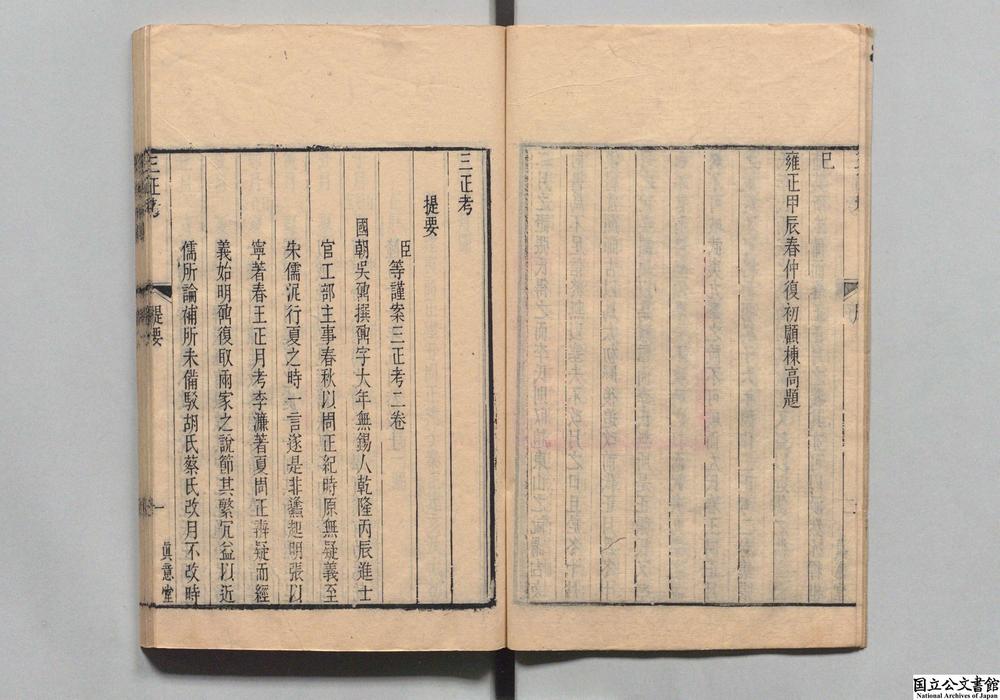 已
雍正甲辰春仲復初顧棟高題
三正考
提要
臣等謹案三正考二卷
國朝吳鼐撰鼐字大年無錫人乾隆丙辰進士
官工部主事春秋以周正紀時原無疑義至
宋儒泥行夏之時一言遂是非蠭起明張以
寧著春王正月考李濂著夏周正辨疑而經
義始明鼐復取兩家之說節其繁冗益以近
儒所論補所未備駁胡氏蔡氏改月不改時
三正考
提要
一
眞意堂
国立公文書館
National Archives of Japan